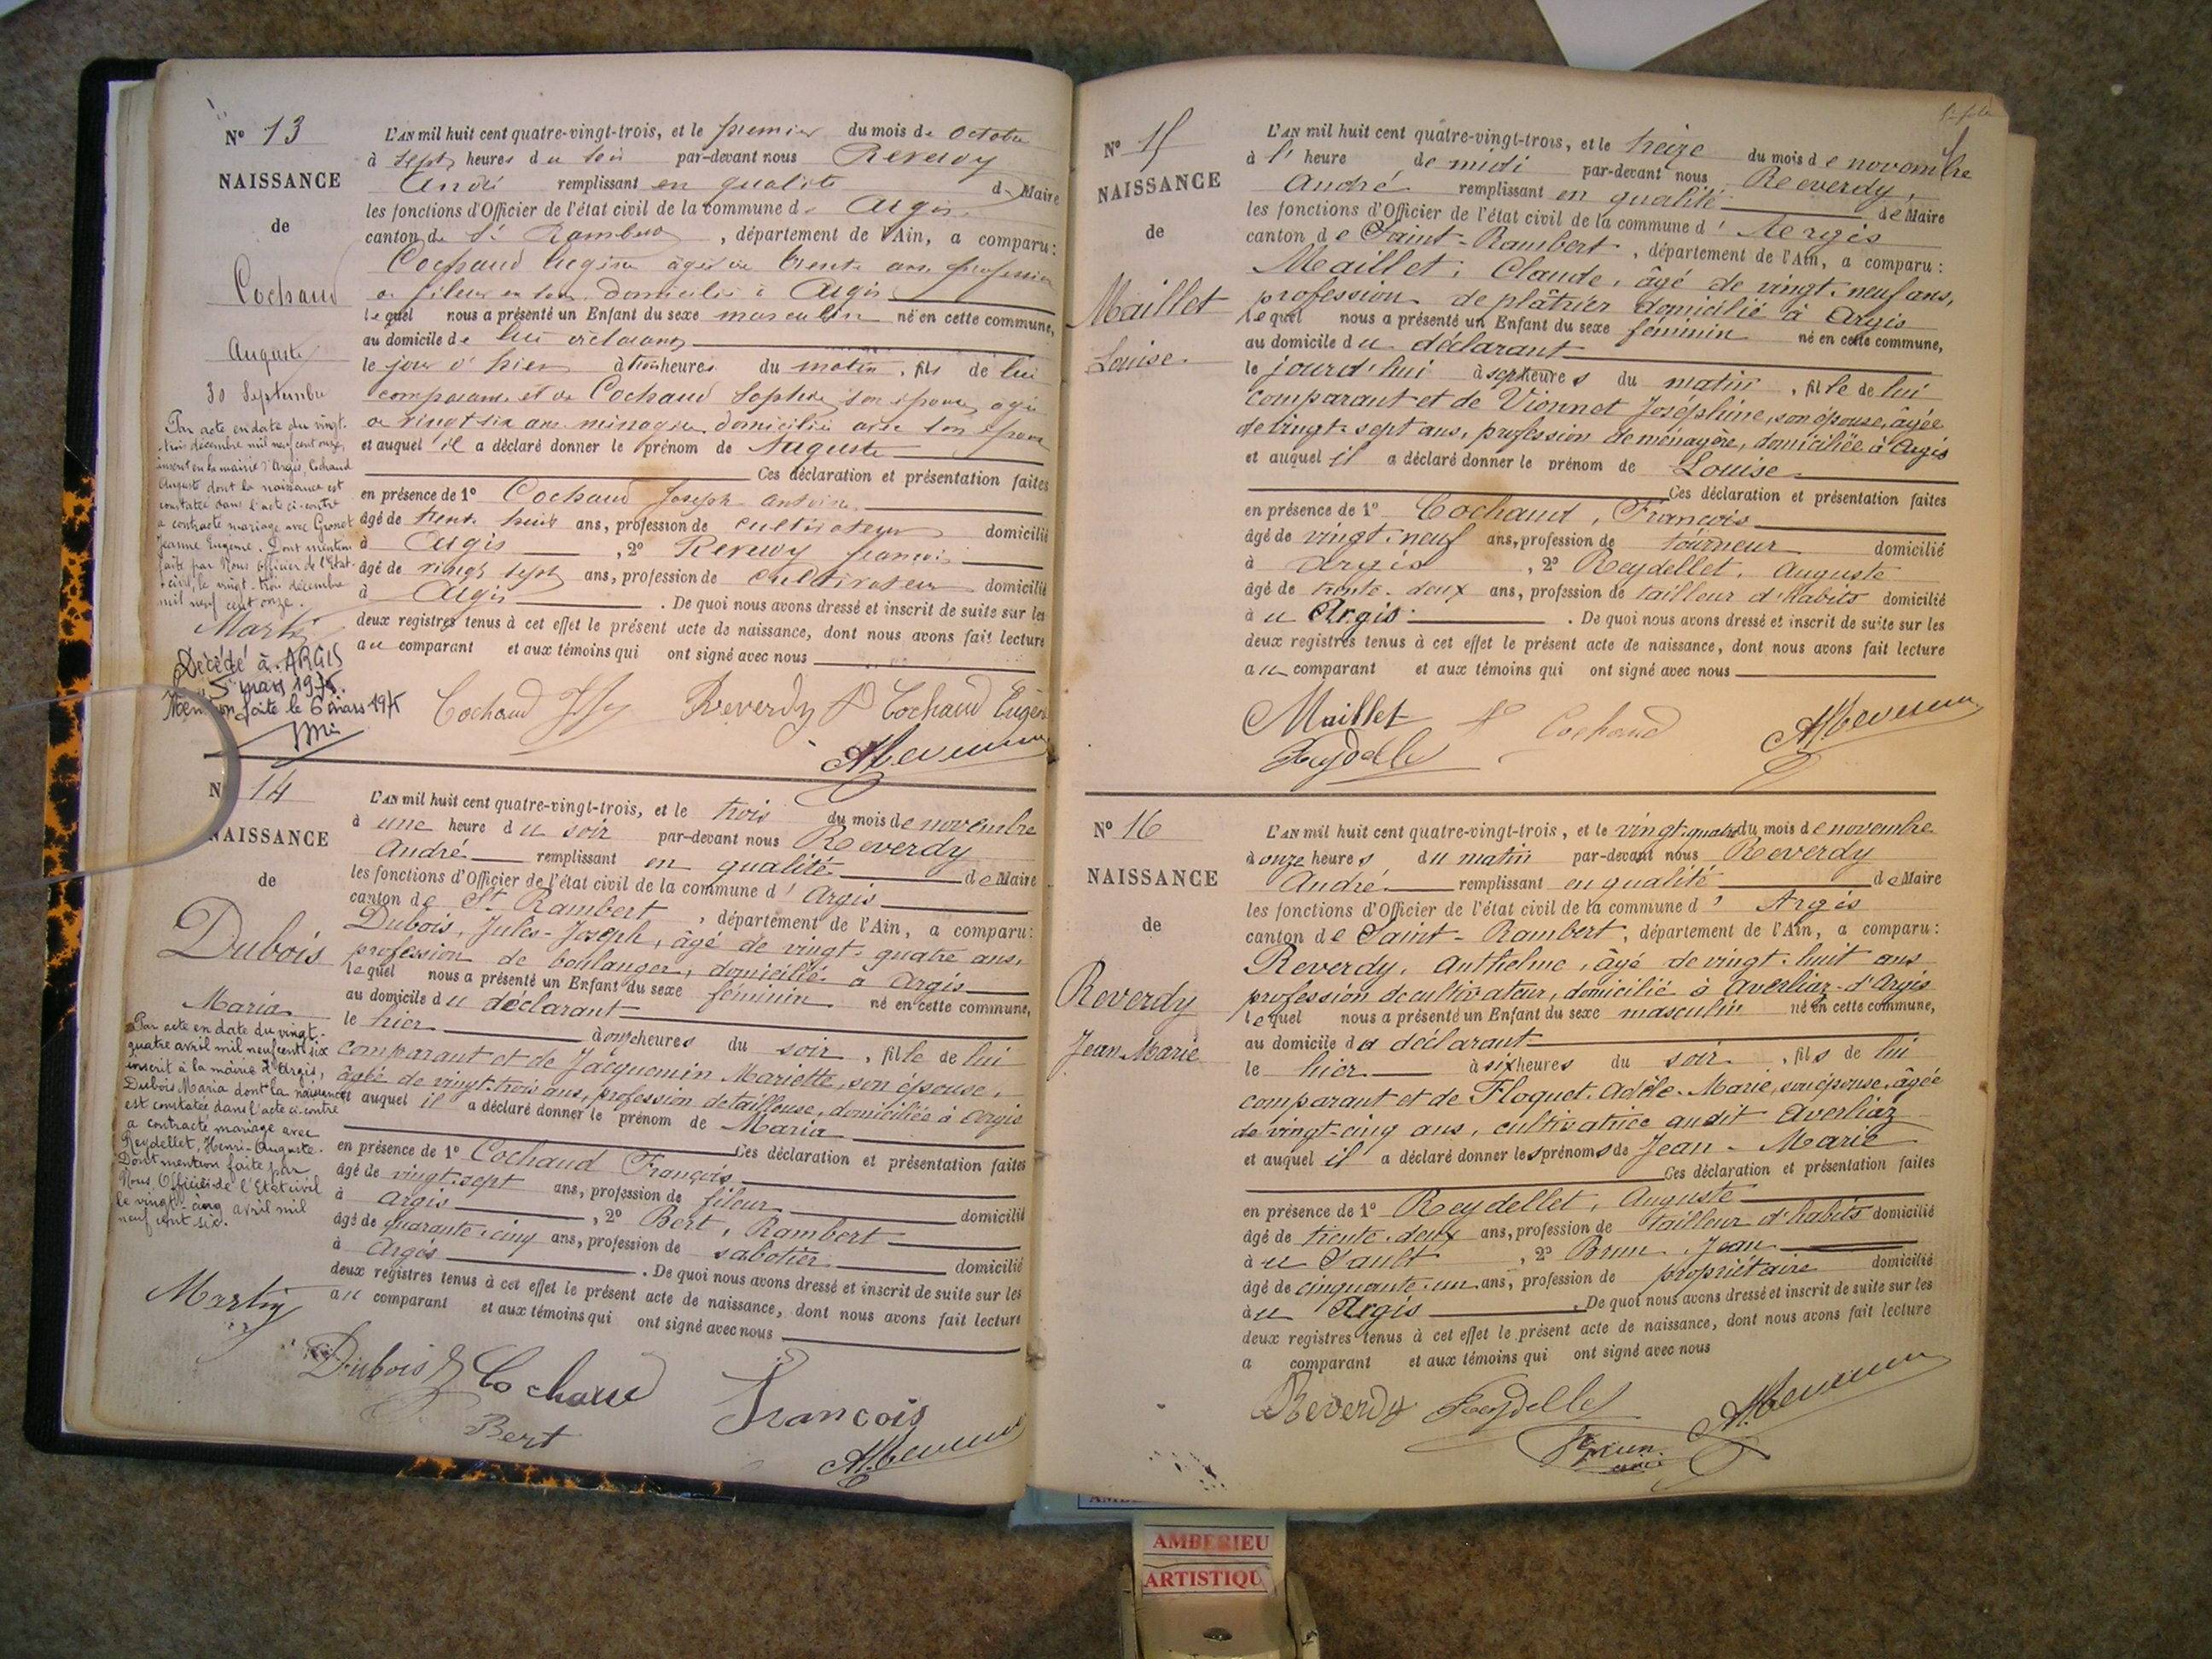 N° 13
NAISSANCE
de
Cochaud
Auguste
30 Septembre
Par acte en date du vingt-
trois décembre mil neuf cent onze,
inscrit en la mairie d'Argis, Cochaud
Auguste dont la naissance est
constatée dans l'acte ci-contre
a contracté mariage avec Gronot
Jeanne Eugénie. Dont mention
faite par Nous Officier de l'Etat-
civil, le vingt-trois décembre
mil neuf cent onze.
Martin
Décédé à ARGIS
5 mars 1975.
Mention faite le 6 mars 1975
L'AN mil huit cent quatre-vingt-trois, et le premier du mois de Octobre
à sept heures du soir par-devant nous Reverdy
André remplissant en qualité de Maire
les fonctions d'Officier de l'état civil de la commune d' Argis
canton de St Rambert, département de l'Ain, a comparu:
Cochaud Eugène âgé de trente ans profession
de fileur domicilié à Argis
lequel nous a présenté un Enfant du sexe masculin né en cette commune,
au domicile de lui déclarant
le jour d'hier à trois heures du matin, fils de lui
comparant et de Cochaud Sophie son épouse agée
de vingt six ans ménagère domiciliée avec son époux
et auquel il a déclaré donner le prénom de Auguste
Ces déclaration et présentation faites
en présence de 1° Cochaud Joseph Antoine
âgé de trente huit ans, profession de cultivateur domicilié
à Argis, 2° Reverdy François
âgé de vingt sept ans, profession de cultivateur domicilié
à Argis. De quoi nous avons dressé et inscrit de suite sur les
deux registres tenus à cet effet le présent acte de naissance, dont nous avons fait lecture
au comparant et aux témoins qui ont signé avec nous
Cochaud Reverdy F Cochaud Eugène
N° 14
NAISSANCE
de
Dubois
Maria
Par acte en date du vingt-
quatre avril mil neuf cent six
inscrit à la mairie d'Argis,
Dubois Maria dont la naissance
est constatée dans l'acte ci-contre
a contracté mariage avec
Reydellet, Henri-Auguste.
Dont mention faite par
Nous, Officier de l'Etat civil
le vingt-cinq avril mil
neuf cent six.
Martin
L'AN mil huit cent quatre-vingt-trois, et le trois du mois de novembre
à une heure du soir par-devant nous Reverdy
André remplissant en qualité de Maire
les fonctions d'Officier de l'état civil de la commune d' Argis
canton de St Rambert, département de l'Ain, a comparu:
Dubois, Jules-Joseph, âgé de vingt-quatre ans,
profession de boulanger, domicilié à Argis
lequel nous a présenté un Enfant du sexe féminin né en cette commune,
au domicile du déclarant
le hier à onze heures du soir, fille de lui
comparant et de Jacquemin Mariette, son épouse,
âgée de vingt-trois ans, profession de tailleuse, domiciliée à Argis
et auquel il a déclaré donner le prénom de Maria
Ces déclaration et présentation faites
en présence de 1° Cochaud François
âgé de vingt-sept ans, profession de fileur domicilié
à Argis, 2° Bert, Rambert
âgé de quarante-cinq ans, profession de sabotier domicilié
à Argis. De quoi nous avons dressé et inscrit de suite sur les
deux registres tenus à cet effet le présent acte de naissance, dont nous avons fait lecture
au comparant et aux témoins qui ont signé avec nous
Dubois J Cochaud François
Bert
N° 15
NAISSANCE
de
Maillet
Louise
L'AN mil huit cent quatre-vingt-trois, et le treize du mois de novembre
à l' heure de midi par-devant nous Reverdy,
André remplissant en qualité de Maire
les fonctions d'Officier de l'état civil de la commune d' Argis
canton de Saint-Rambert, département de l'Ain, a comparu:
Maillet, Claude, âgé de vingt-neuf ans,
profession de plâtrier domicilié à Argis
lequel nous a présenté un Enfant du sexe féminin né en cette commune,
au domicile du déclarant
le jourd'hui à sept heures du matin, fille de lui
comparant et de Vionnet Joséphine, son épouse, âgée
de vingt-sept ans, profession de ménagère, domiciliée à Argis
et auquel il a déclaré donner le prénom de Louise
Ces déclaration et présentation faites
en présence de 1° Cochaud, François
âgé de vingt-neuf ans, profession de tourneur domicilié
à Argis, 2° Reydellet, Auguste
âgé de trente-deux ans, profession de tailleur d'habits domicilié
à u Argis. De quoi nous avons dressé et inscrit de suite sur les
deux registres tenus à cet effet le présent acte de naissance, dont nous avons fait lecture
au comparant et aux témoins qui ont signé avec nous
Maillet F Cochaud
Reydellet
N° 16
NAISSANCE
de
Reverdy
Jean Marie
L'AN mil huit cent quatre-vingt-trois, et le vingt-quatre du mois de novembre
à onze heures du matin par-devant nous Reverdy
André remplissant en qualité de Maire
les fonctions d'Officier de l'état civil de la commune d' Argis
canton de Saint-Rambert, département de l'Ain, a comparu:
Reverdy, Anthelme, âgé de vingt-huit ans
profession de cultivateur, domicilié à Averliaz-d'Argis
lequel nous a présenté un Enfant du sexe masculin né en cette commune,
au domicile du déclarant
le hier à six heures du soir, fils de lui
comparant et de Floquet Adèle-Marie, son épouse, âgée
de vingt-cinq ans, cultivatrice audit Averliaz
et auquel il a déclaré donner les prénoms de Jean-Marie
Ces déclaration et présentation faites
en présence de 1° Reydellet, Auguste
âgé de trente-deux ans, profession de tailleur d'habits domicilié
à u Sault, 2° Brun, Jean
âgé de cinquante-un ans, profession de propriétaire domicilié
à u Argis. De quoi nous avons dressé et inscrit de suite sur les
deux registres tenus à cet effet le présent acte de naissance, dont nous avons fait lecture
a comparant et aux témoins qui ont signé avec nous
Reverdy Reydellet
Brun
AMBERIEU
ARTISTIQU